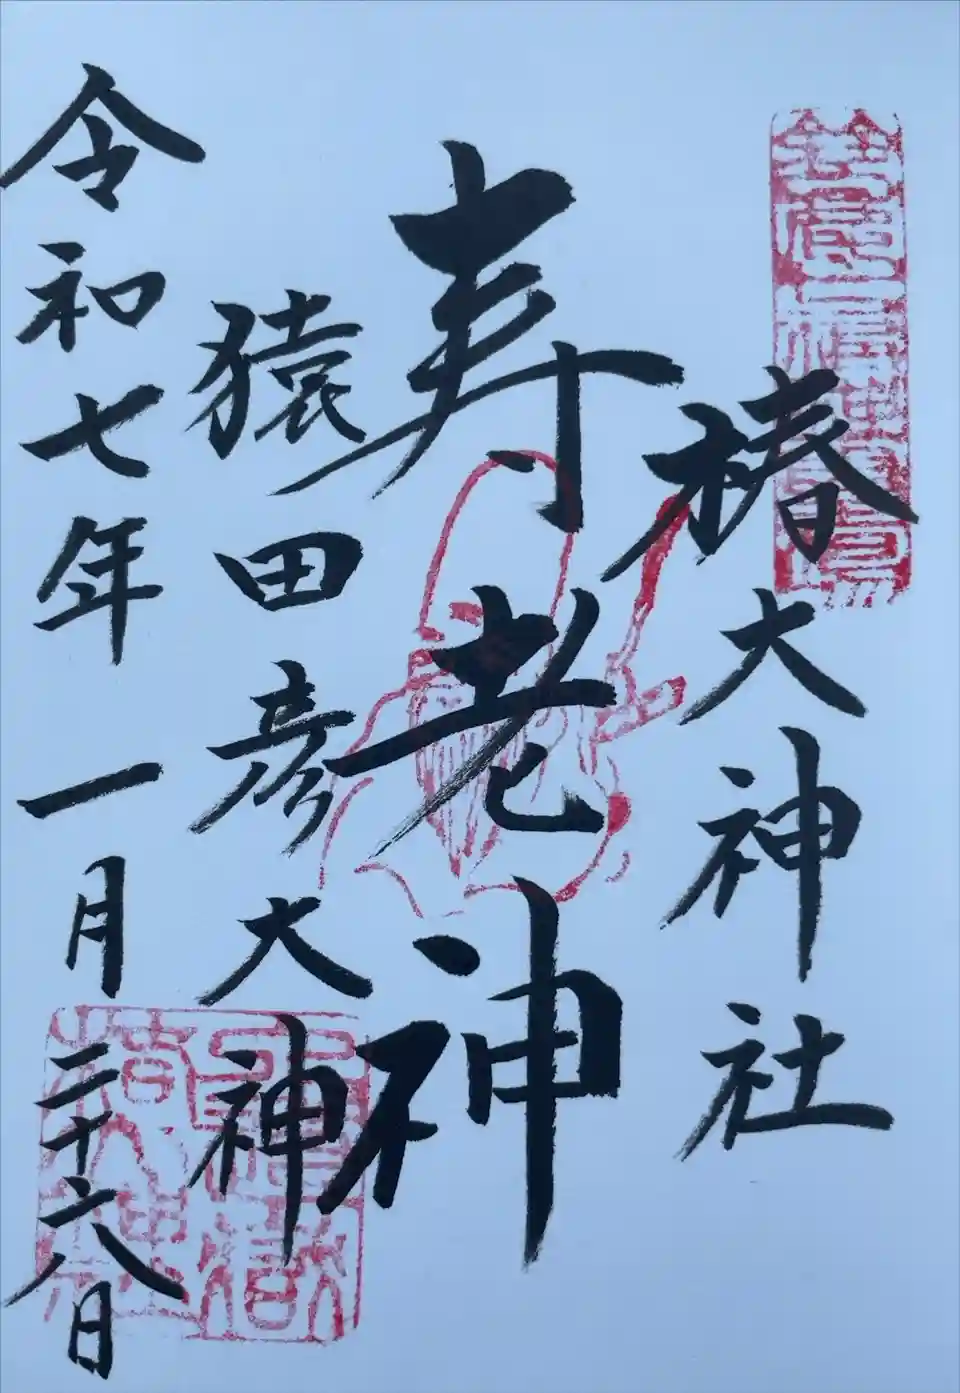 椿大神社
寿老神
猿田彦大神
令和七年一月二十六日